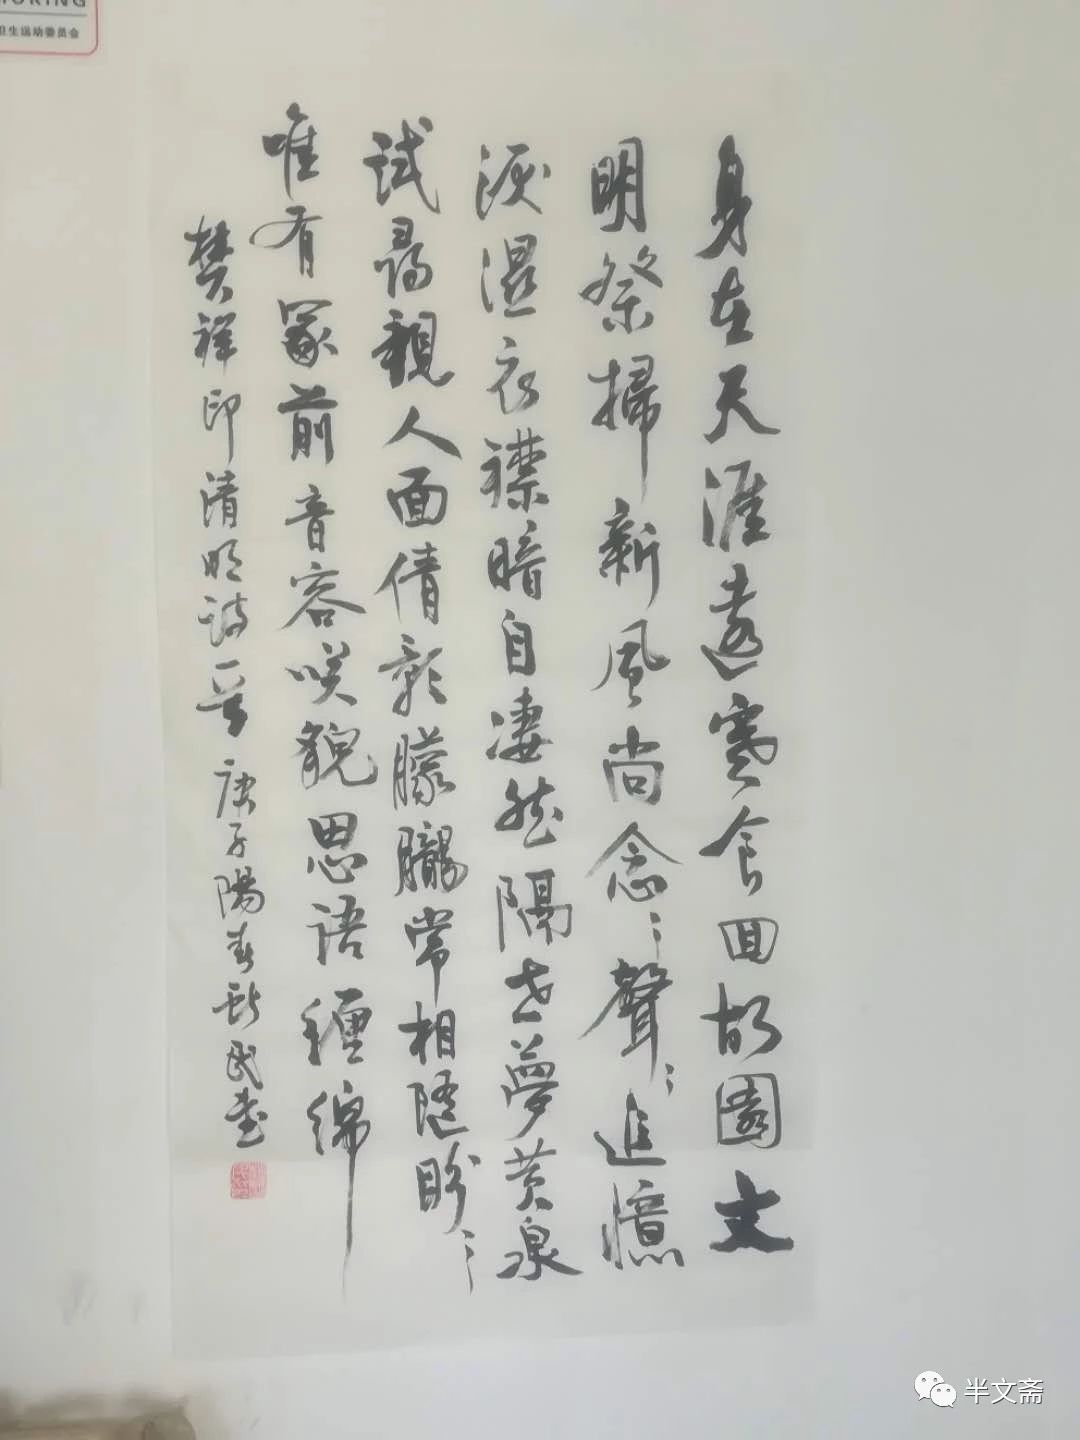 ORING
卫生运动委员会
身在天涯遠寒食回故園文
明祭掃新風尚念〻聲〻追憶
淚濕衣襟暗自淒然隔世夢黄泉
試尋親人面倩影朦朧常相隨盼〻
唯有冢前音容咲貌思語纏綿
樊祥印清明詩一首 庚子陽春新民書
半文斋